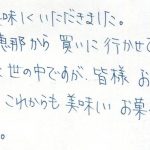 味しくいただきました。
恵那から 買いに 行かせて
世の中ですが、皆様 お
これからも 美味しい お菓
。